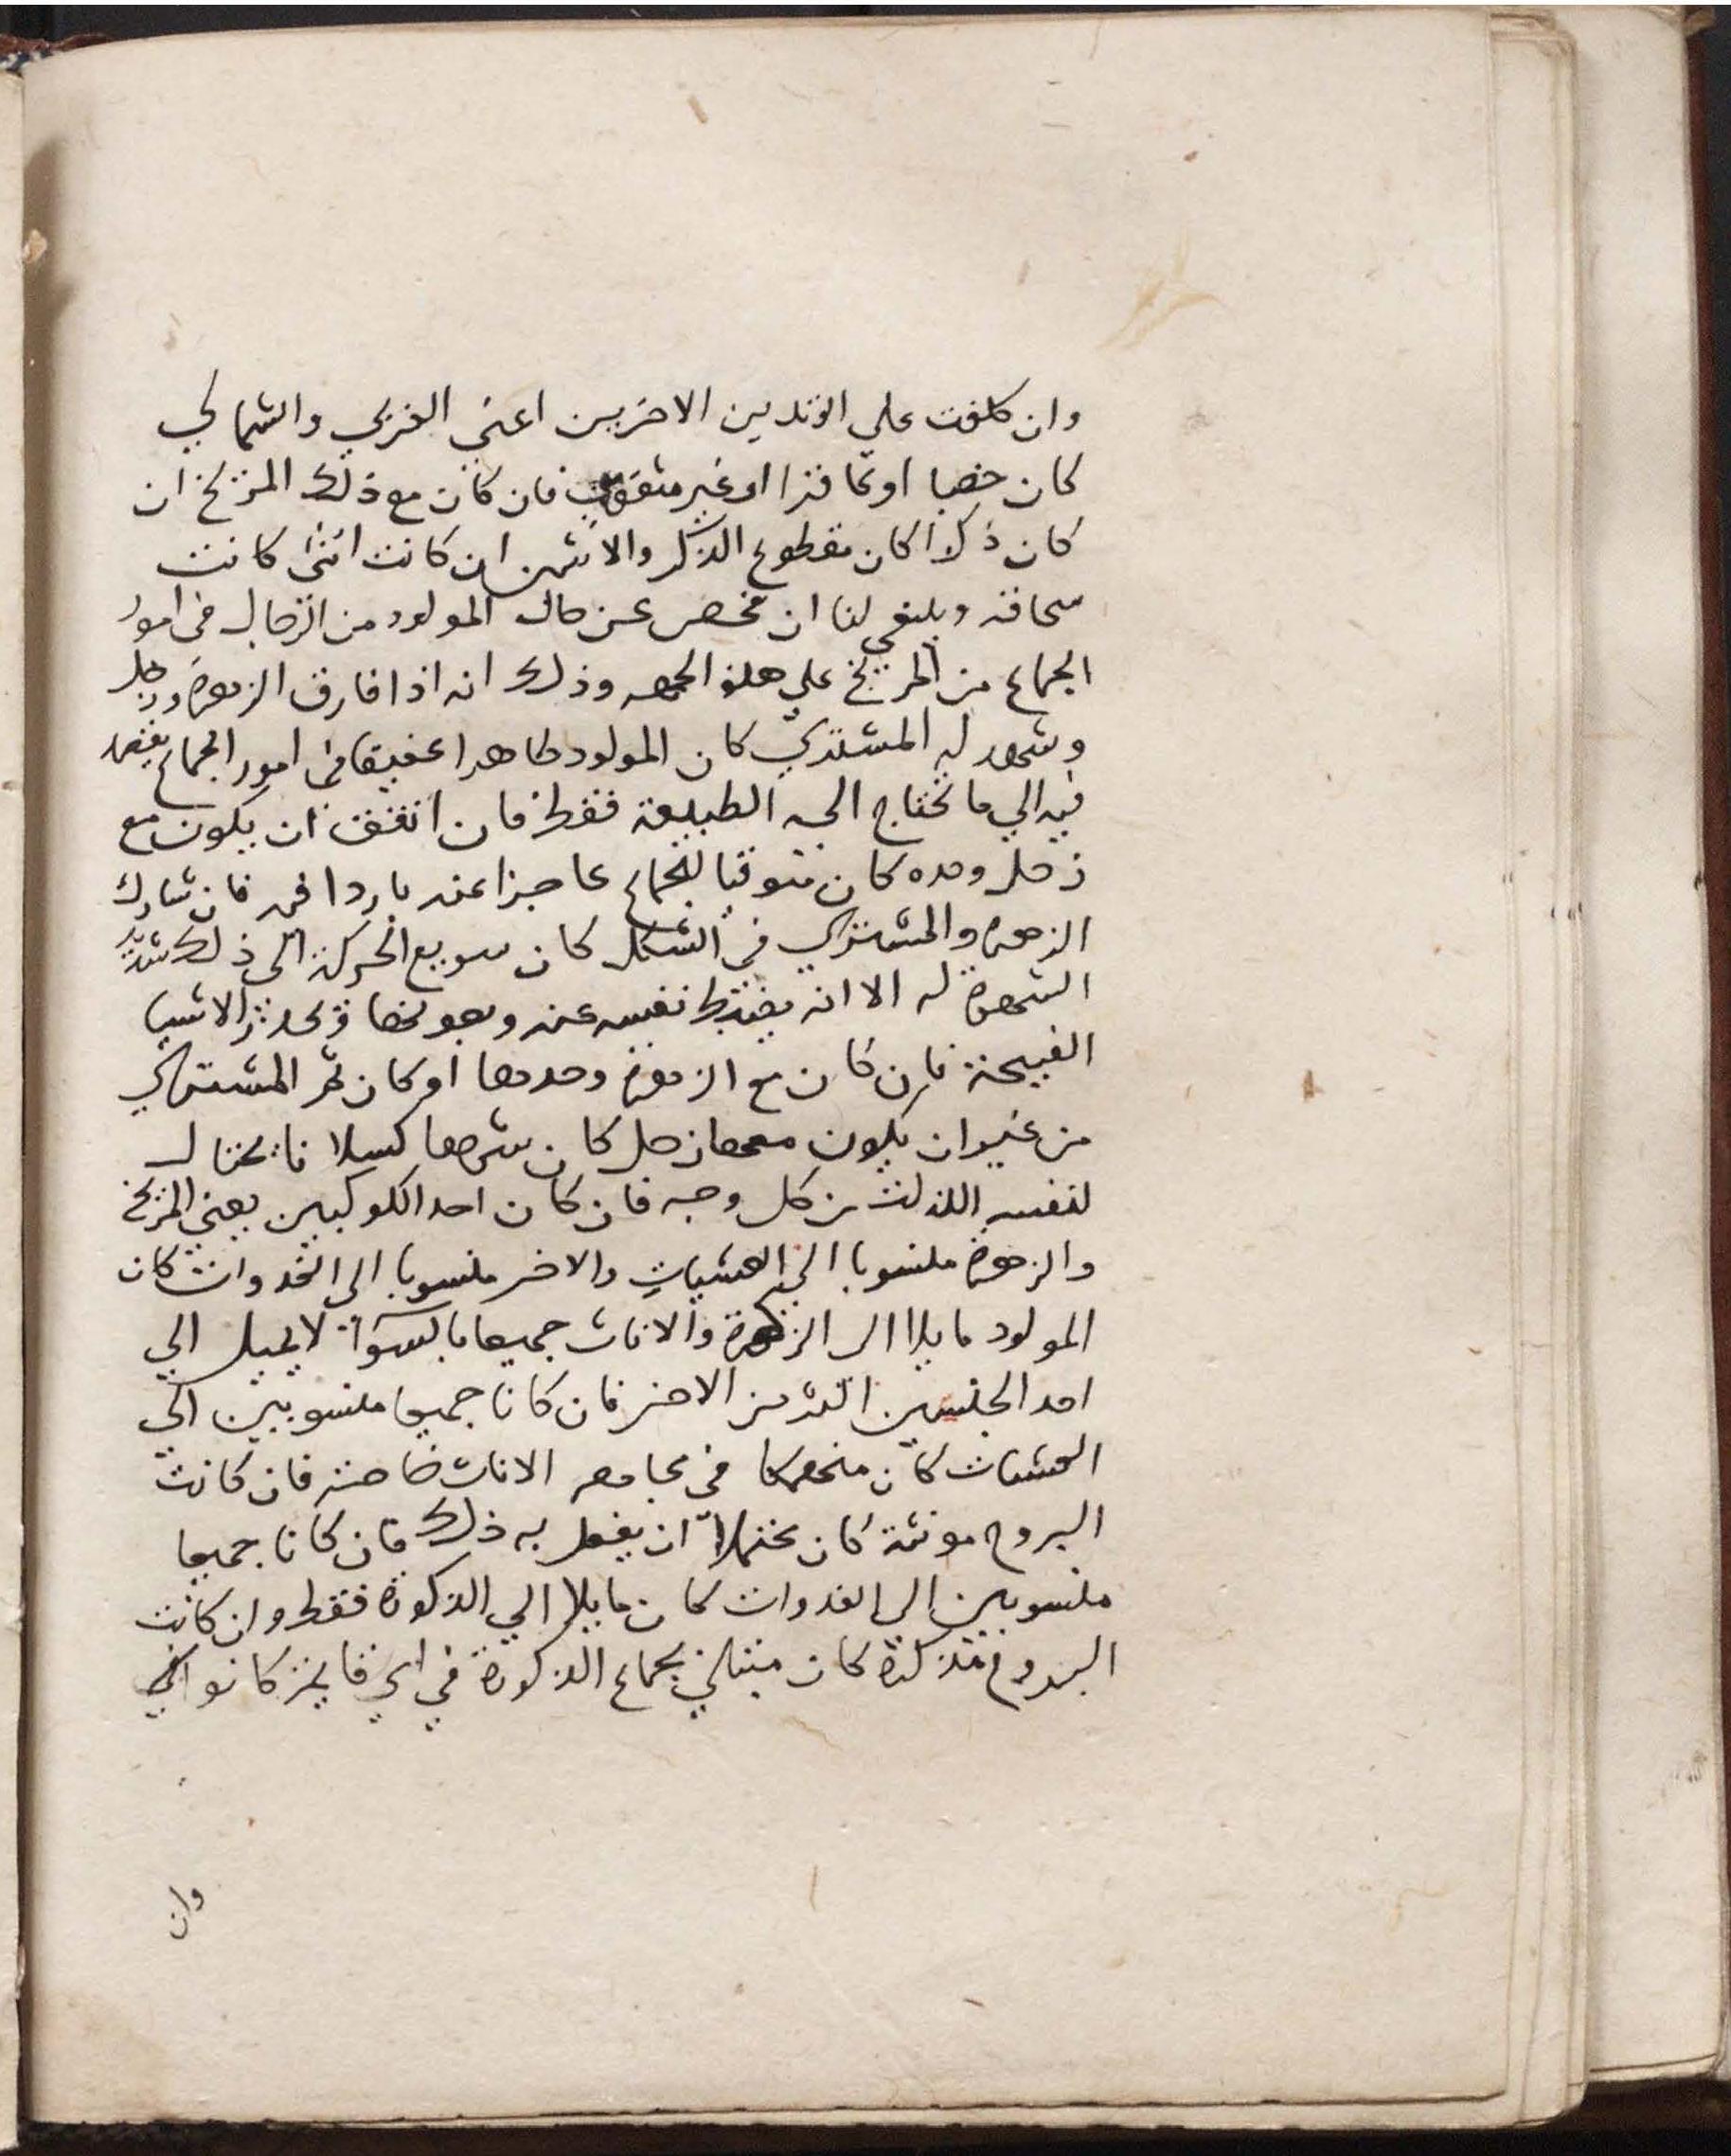 وان كانت علي الوتدين الاخريين اعني الغربي والشمالي
كان خصيا او عاقرا او غير مثقوب فان كان مع ذلك المريخ ان
كان ذكرا كان مقطوع الذكر والانثيين ان كانت انثي كانت
سحاقه وينبغي لنا ان نفحص عن حال المولود من الرجال في امور
الجماع من المريخ علي هذه الجهه وذلك انه اذا فارق الزهرة وزحل
وشهد له المشتري كان المولود طاهرا عفيفا في امور الجماع يقصد
فيه الي ما تحتاج اليه الطبيعة فقط فان اتفق ان يكون مع
زحل وحده كان متوقيا للجماع عاجزا عنه باردا فيه فان شارك
الزهرة والمشتري في الشكل كان سريع الحركة الي ذلك شديد
الشهوة له الا انه يضبط نفسه عنه ويصونها وتحدث الاشيا
القبيحة فان كان مع الزهرة وحدها او كان ثم المشتري
من غير ان يكون معها زحل كان شرها كسلا يحتال
لنفسه اللذات من كل وجه فان كان احد الكوكبين يعني المريخ
والزهرة منسوبا الي العشيات والاخر منسوبا الي الغدوات كان
المولود مايلا الي الذكورة والاناث جميعا بالسوآ لا يميل الي
احد الجنسين اكثر من الاخر فان كانا جميعا منسوبين الي
العشيات كان منهمكا في مجامعه الاناث خاصته فان كانت
البروج مونثة كان محتملا ان يفعل به ذلك فان كانا جميعا
منسوبين الي الغدوات كان مايلا الي الذكورة فقط وان كانت
البروج مذكرة كان يجماع الذكورة في اي كانوا
وان